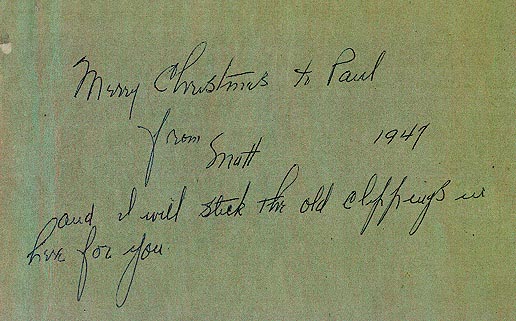 Merry Christmas to Paul
from Matt 1947
and I will stick the old clippings in
here for you.